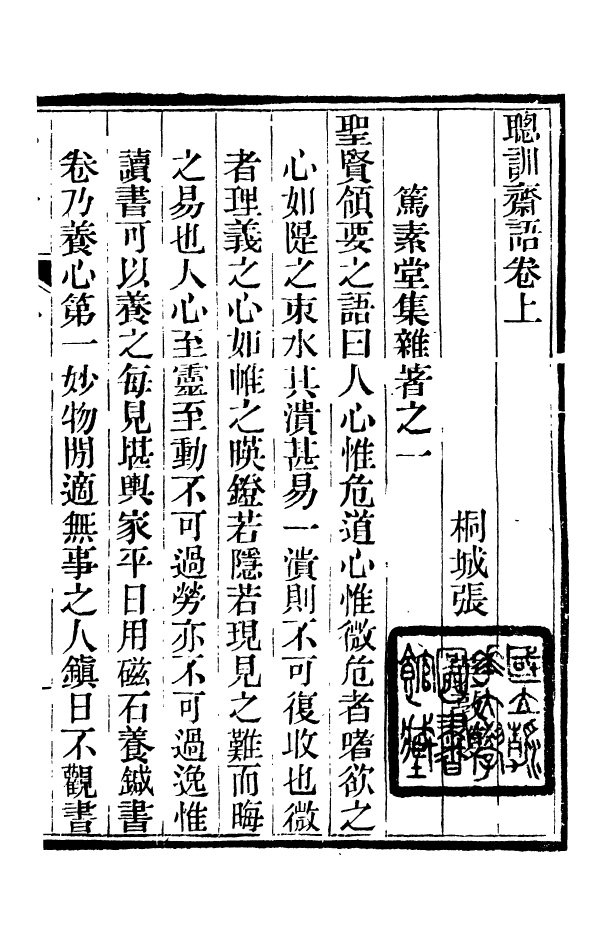 聰訓齋語卷上
桐城張
篤素堂集雜著之一
聖賢領要之語曰人心惟危道心惟微危者嗜欲之
心如隄之束水其潰甚易一潰則不可復收也微
者理義之心如帷之暎鐙若隱若現見之難而晦
之易也人心至靈至動不可過勞亦不可過逸惟
讀書可以養之每見堪輿家平日用磁石養鍼書
卷乃養心第一妙物閒適無事之人鎮日不觀書
國立
大學
圖書
館藏